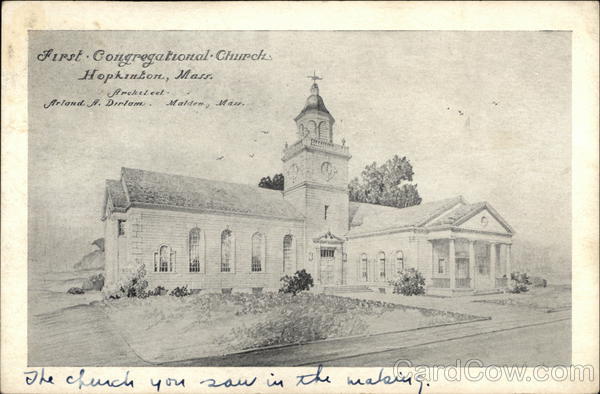 First · Congregational · Church.
Hopkinton, Mass.
Architect
Arland A. Dirlam. Malden, Mass.
The church you saw in the making.
CardCow.com